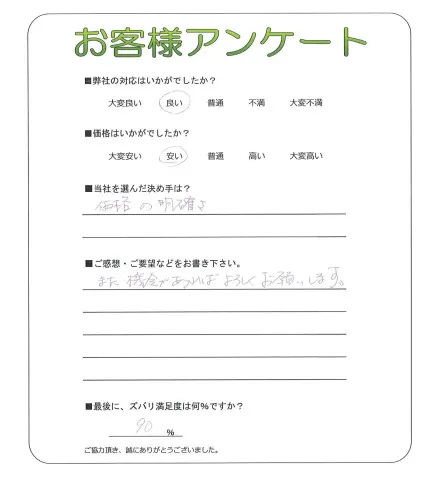 お客様アンケート
■弊社の対応はいかがでしたか?
大変良い 良い 普通 不満 大変不満
■価格はいかがでしたか?
大変安い 安い 普通 高い 大変高い
■当社を選んだ決め手は?
価格の明確さ
■ご感想・ご要望などをお書き下さい。
また機会があればよろしくお願いします。
■最後に、ズバリ満足度は何%ですか?
90 %
ご協力頂き、誠にありがとうございました。